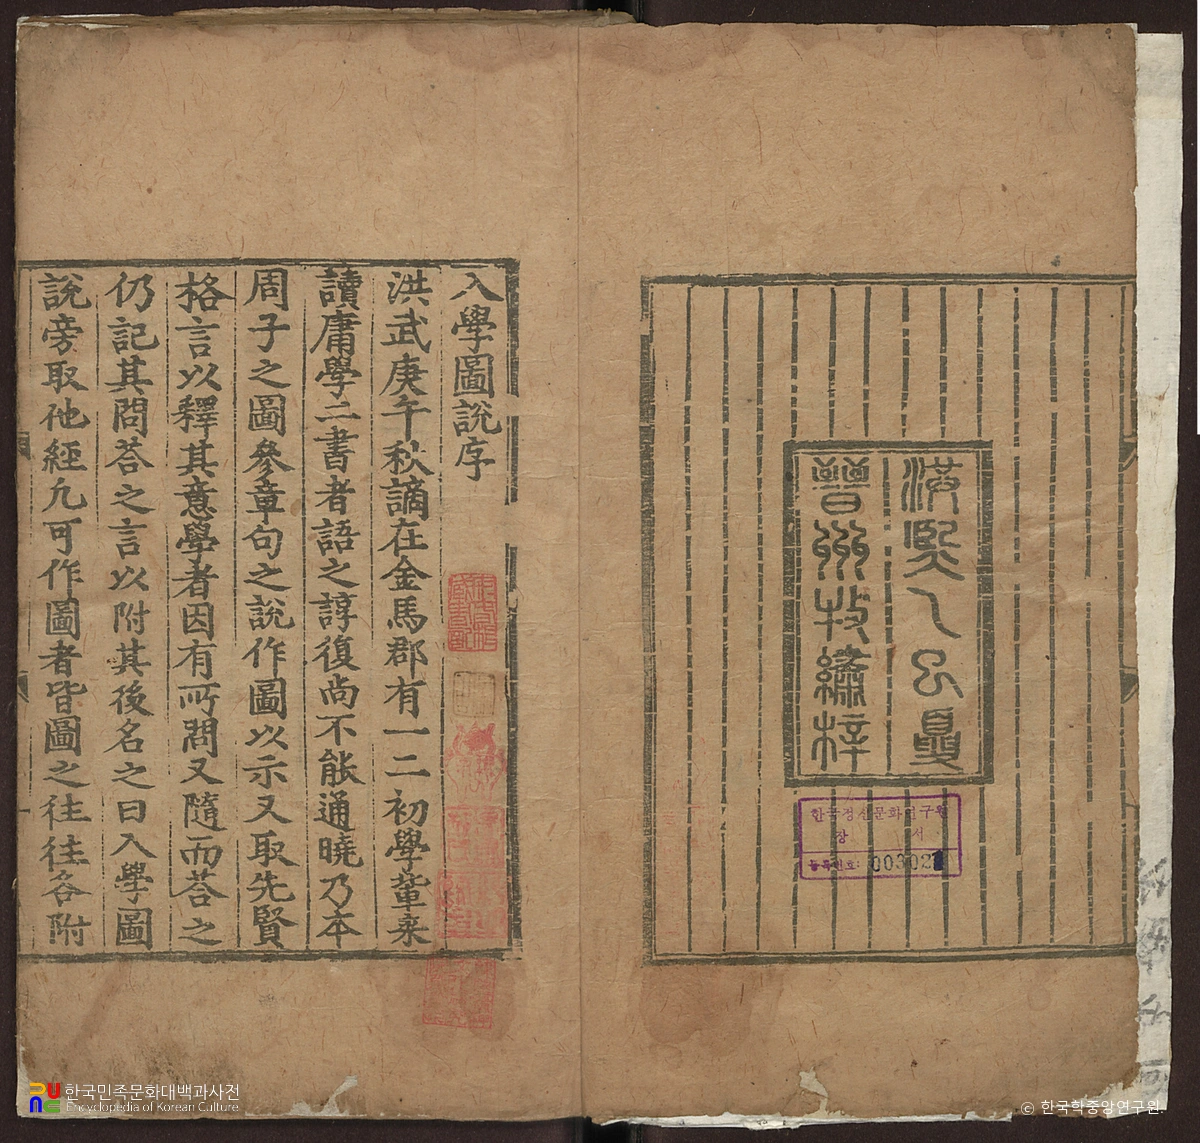 洪熙乙巳夏
晉州牧繡梓
한국정신문화연구원
장 서
등록번호: 003021
入學圖說序
洪武庚午秋謫在金馬郡有一二初學輩來
讀庸學二書者語之諄復尚不能通曉乃本
周子之圖參章句之說作圖以示又取先賢
格言以釋其意學者因有所問又隨而荅之
仍記其問荅之言以附其後名之曰入學圖
說旁取他經凢可作圖者皆圖之往往各附
한국민족문화대백과사전
Encyclopedia of Korean Culture
© 한국학중앙연구원.